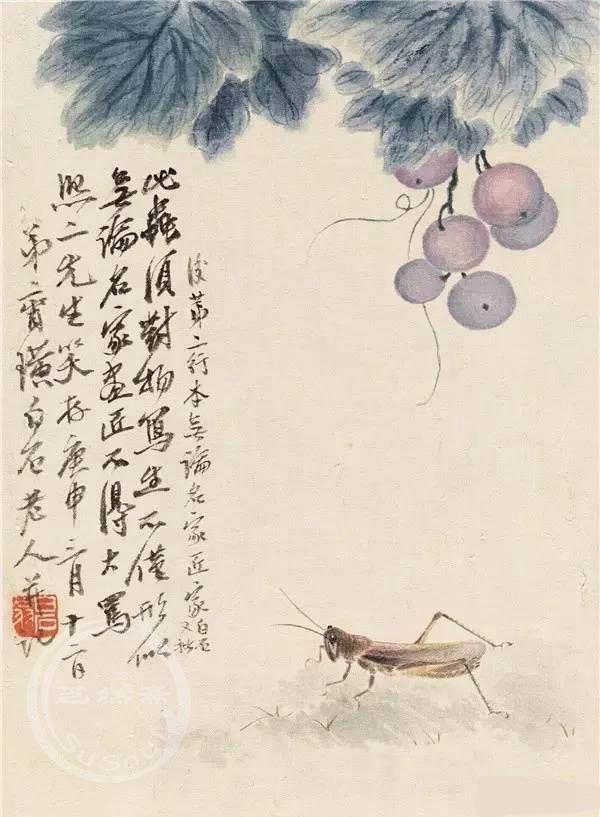 後第二行本無論名家匠家
白石又
此蟲須對物寫生不僅形似
無論名家画匠不得大罵
熙二先生笑存庚申三月十二日
弟齊璜白石老人並記
白石翁